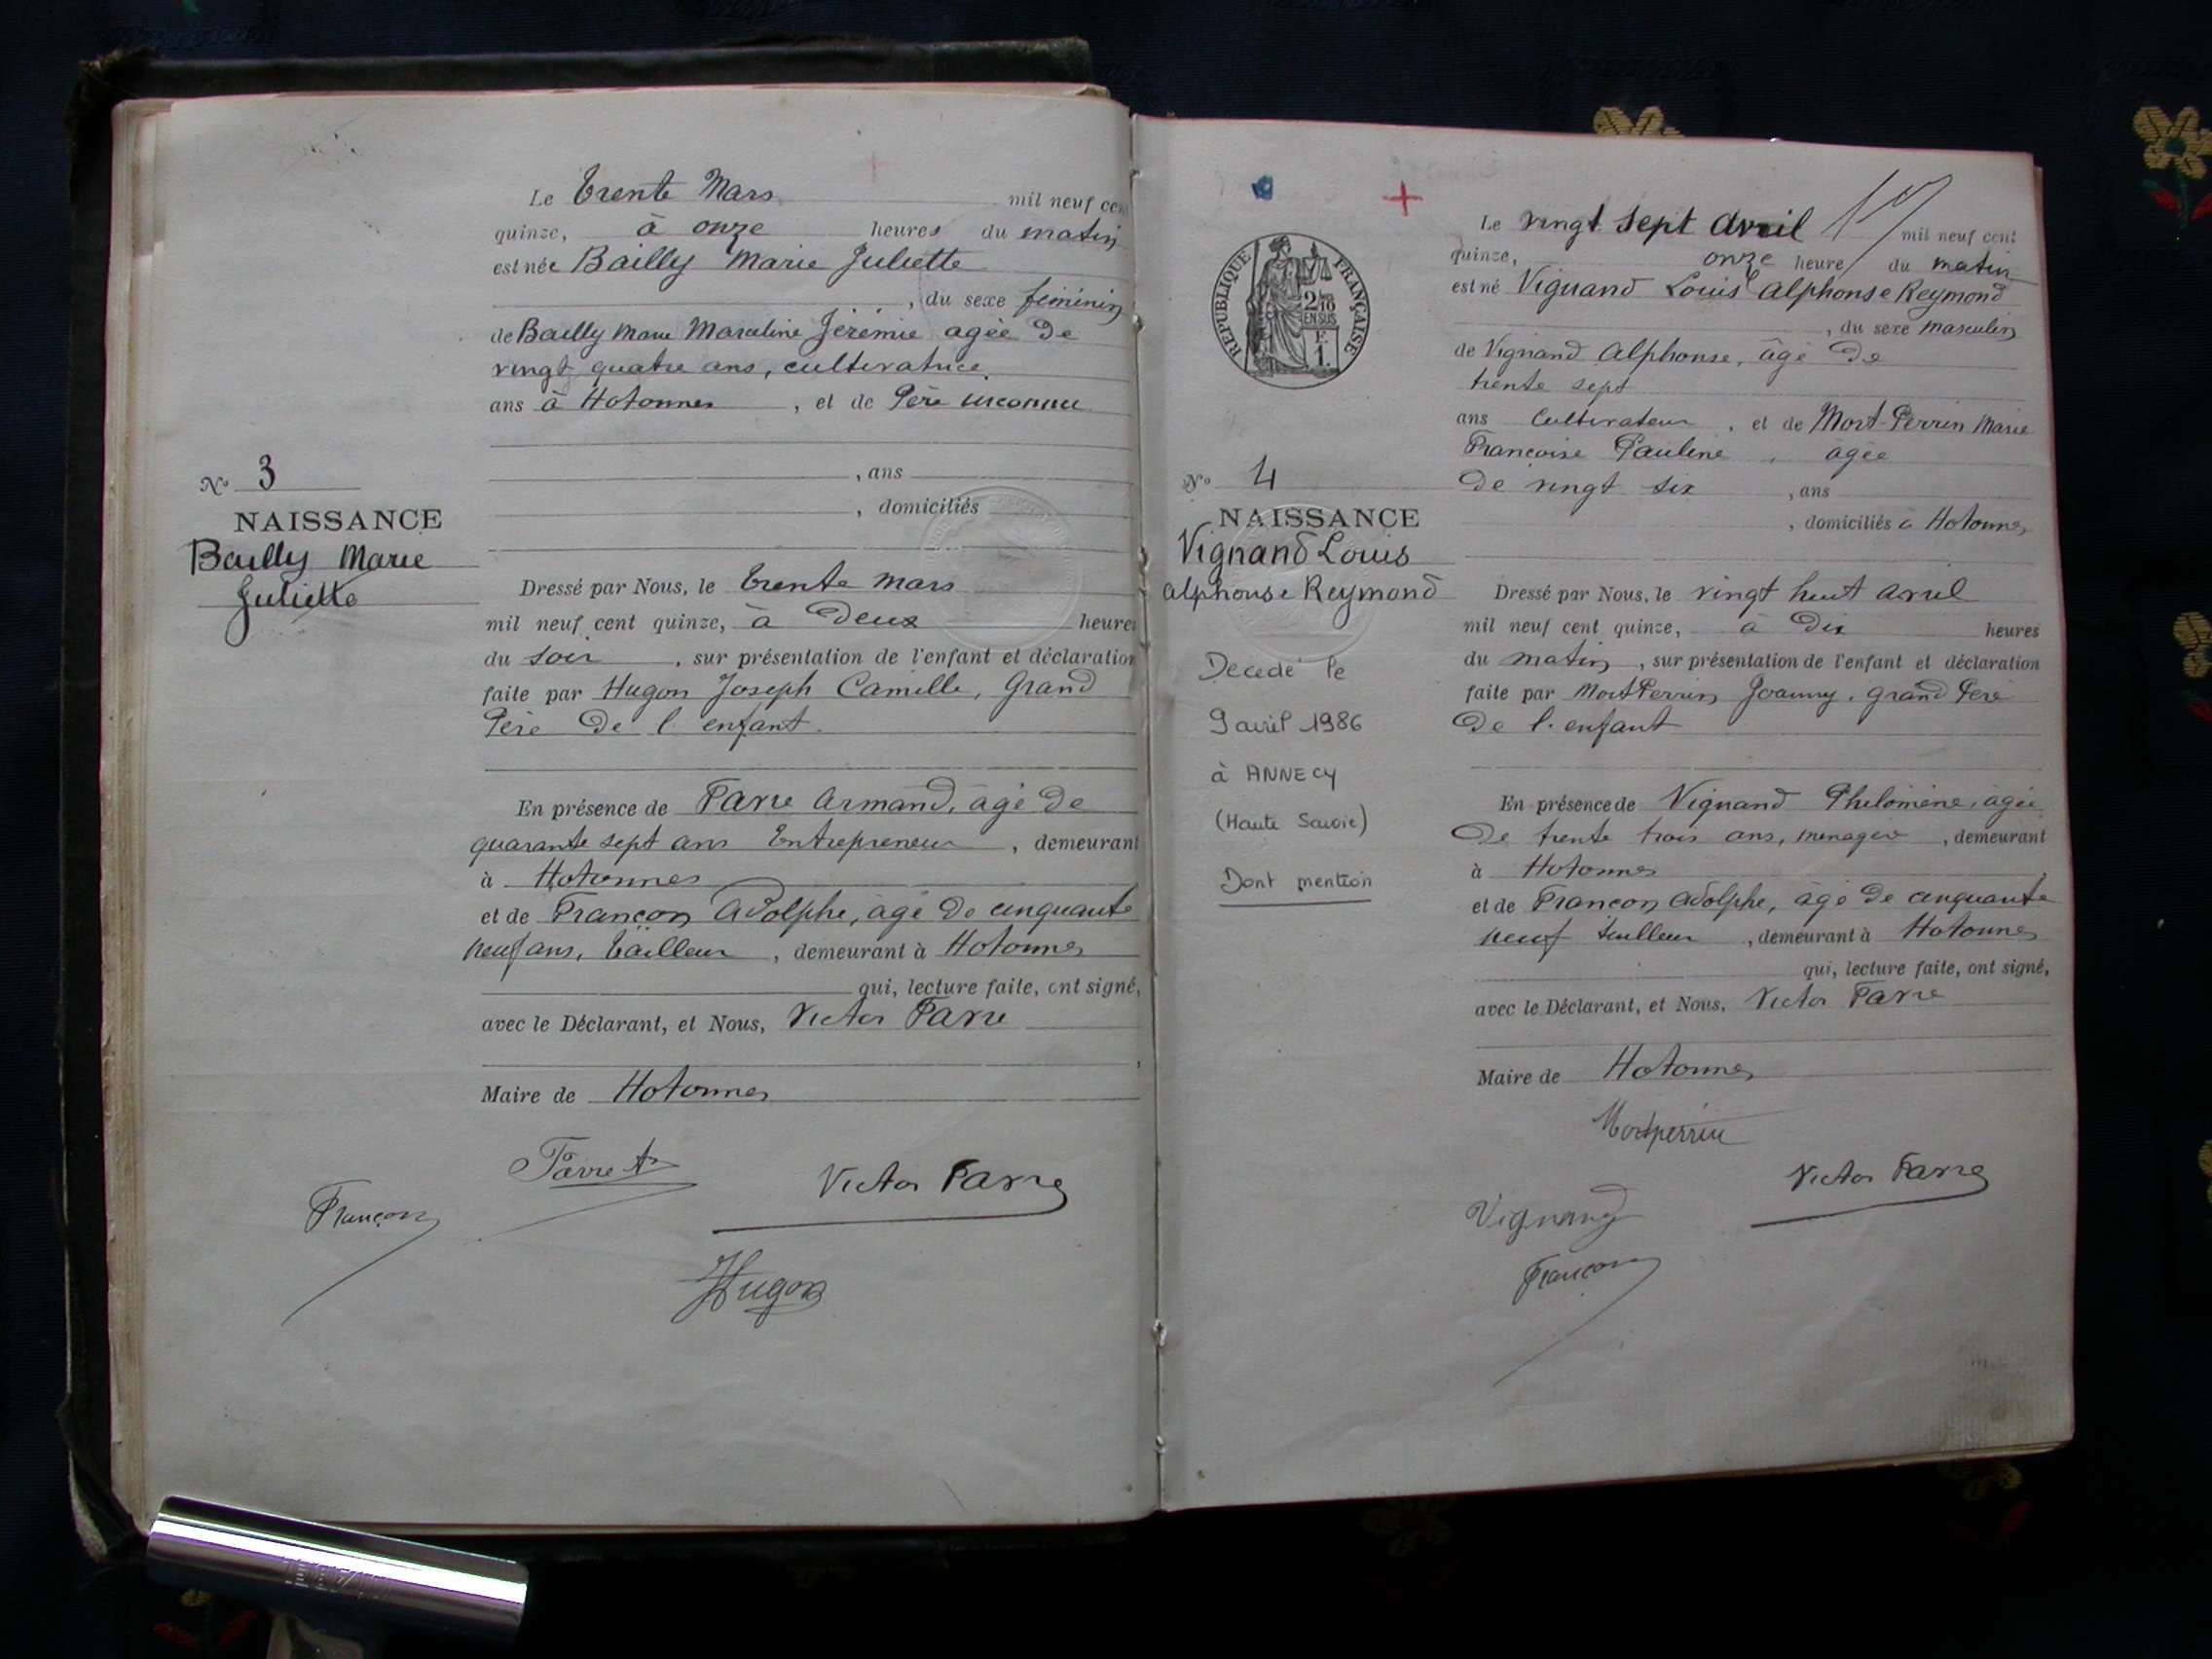 Le trente Mars mil neuf cen
quinze, à onze heures du matin
est née Bailly Marie Juliette
, du sexe féminin
de Bailly Marie Marceline Jérémie agée de
vingt quatre ans, cultivatrice
ans à Hotonnes , et de Père inconnu
, ans
, domiciliés
N° 3
NAISSANCE
Bailly Marie
Juliette
Dressé par Nous, le trente mars
mil neuf cent quinze, à deux heures
du soir , sur présentation de l'enfant et déclaration
faite par Hugon Joseph Camille, Grand
Père de l'enfant
En présence de Favre Armand, agé de
quarante sept ans Entrepreneur , demeurant
à Hotonnes
et de Françon Adolphe, agé de cinquante
neuf ans, tailleur , demeurant à Hotonnes
qui, lecture faite, ont signé,
avec le Déclarant, et Nous, Victor Favre
Maire de Hotonnes
Favre A
Françon
Victor Favre
Hugon
RÉPUBLIQUE FRANÇAISE
2/10
EN SUS
F.
1.
Le vingt sept avril mil neuf cent
quinze, onze heure du matin
est né Vignand Louis Alphonse Reymond
, du sexe masculin
de Vignand Alphonse, âgé de
trente sept
ans Cultivateur , et de Mort-Perrin Marie
Françoise Pauline , agée
de vingt six , ans
, domiciliés à Hotonnes
N° 4
NAISSANCE
Vignand Louis
Alphonse Reymond
Decedé le
9 avril 1986
à ANNECY
(Haute Savoie)
Dont mention
Dressé par Nous, le vingt huit avril
mil neuf cent quinze, à dix heures
du matin , sur présentation de l'enfant et déclaration
faite par MortPerrin Joanny, grand Père
de l'enfant
En présence de Vignand Philomène, agée
de trente trois ans, menagère , demeurant
à Hotonnes
et de Françon Adolphe, âgé de cinquante
neuf tailleur , demeurant à Hotonnes
qui, lecture faite, ont signé,
avec le Déclarant, et Nous, Victor Favre
Maire de Hotonnes
Mortperrin
Victor Favre
Vignand
Françon